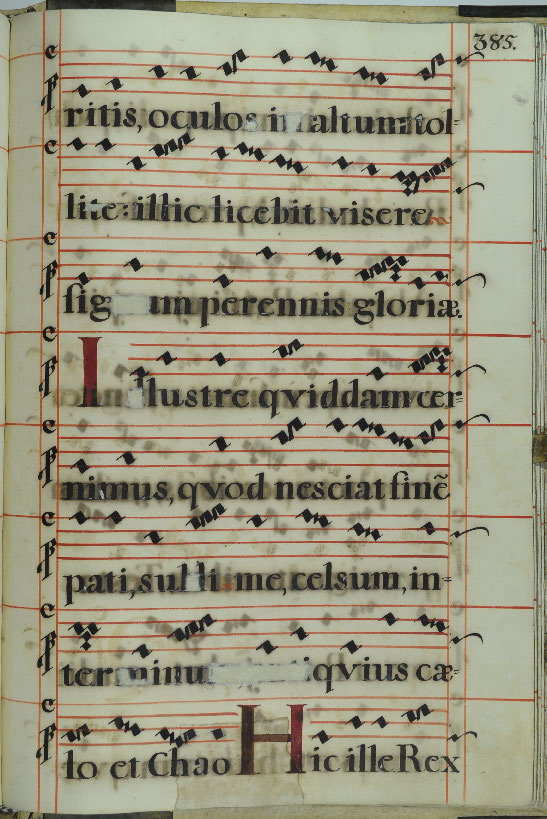 385.
ritis, oculos in altum tol-
lite: illic licebit visere
sig um perennis gloriæ.
Illustre qviddam cer-
nimus, qvod nesciat finẽ
pati, subli me, celsum, in-
terminu iqvius cæ-
lo et Chao Hic ille Rex